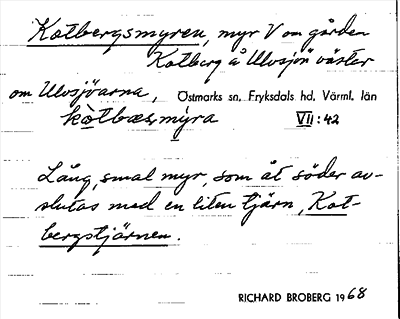 Kotbergsmyren, myr V om gården
Kotberg å Ulvsjön väster
om Ulvsjöarna, Östmarks sn, Fryksdals hd, Värml. län
kòtbæsmýra VII:42
Lång, smal myr, som åt söder av-
slutas med en liten tjärn, Kot-
bergstjärnen.
RICHARD BROBERG 1968